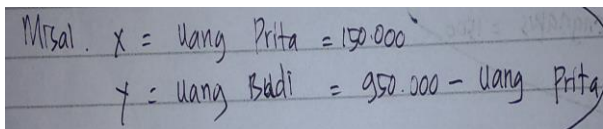 Misal. X = Uang Prita = 150.000
Y = Uang Budi = 950.000 - Uang Prita